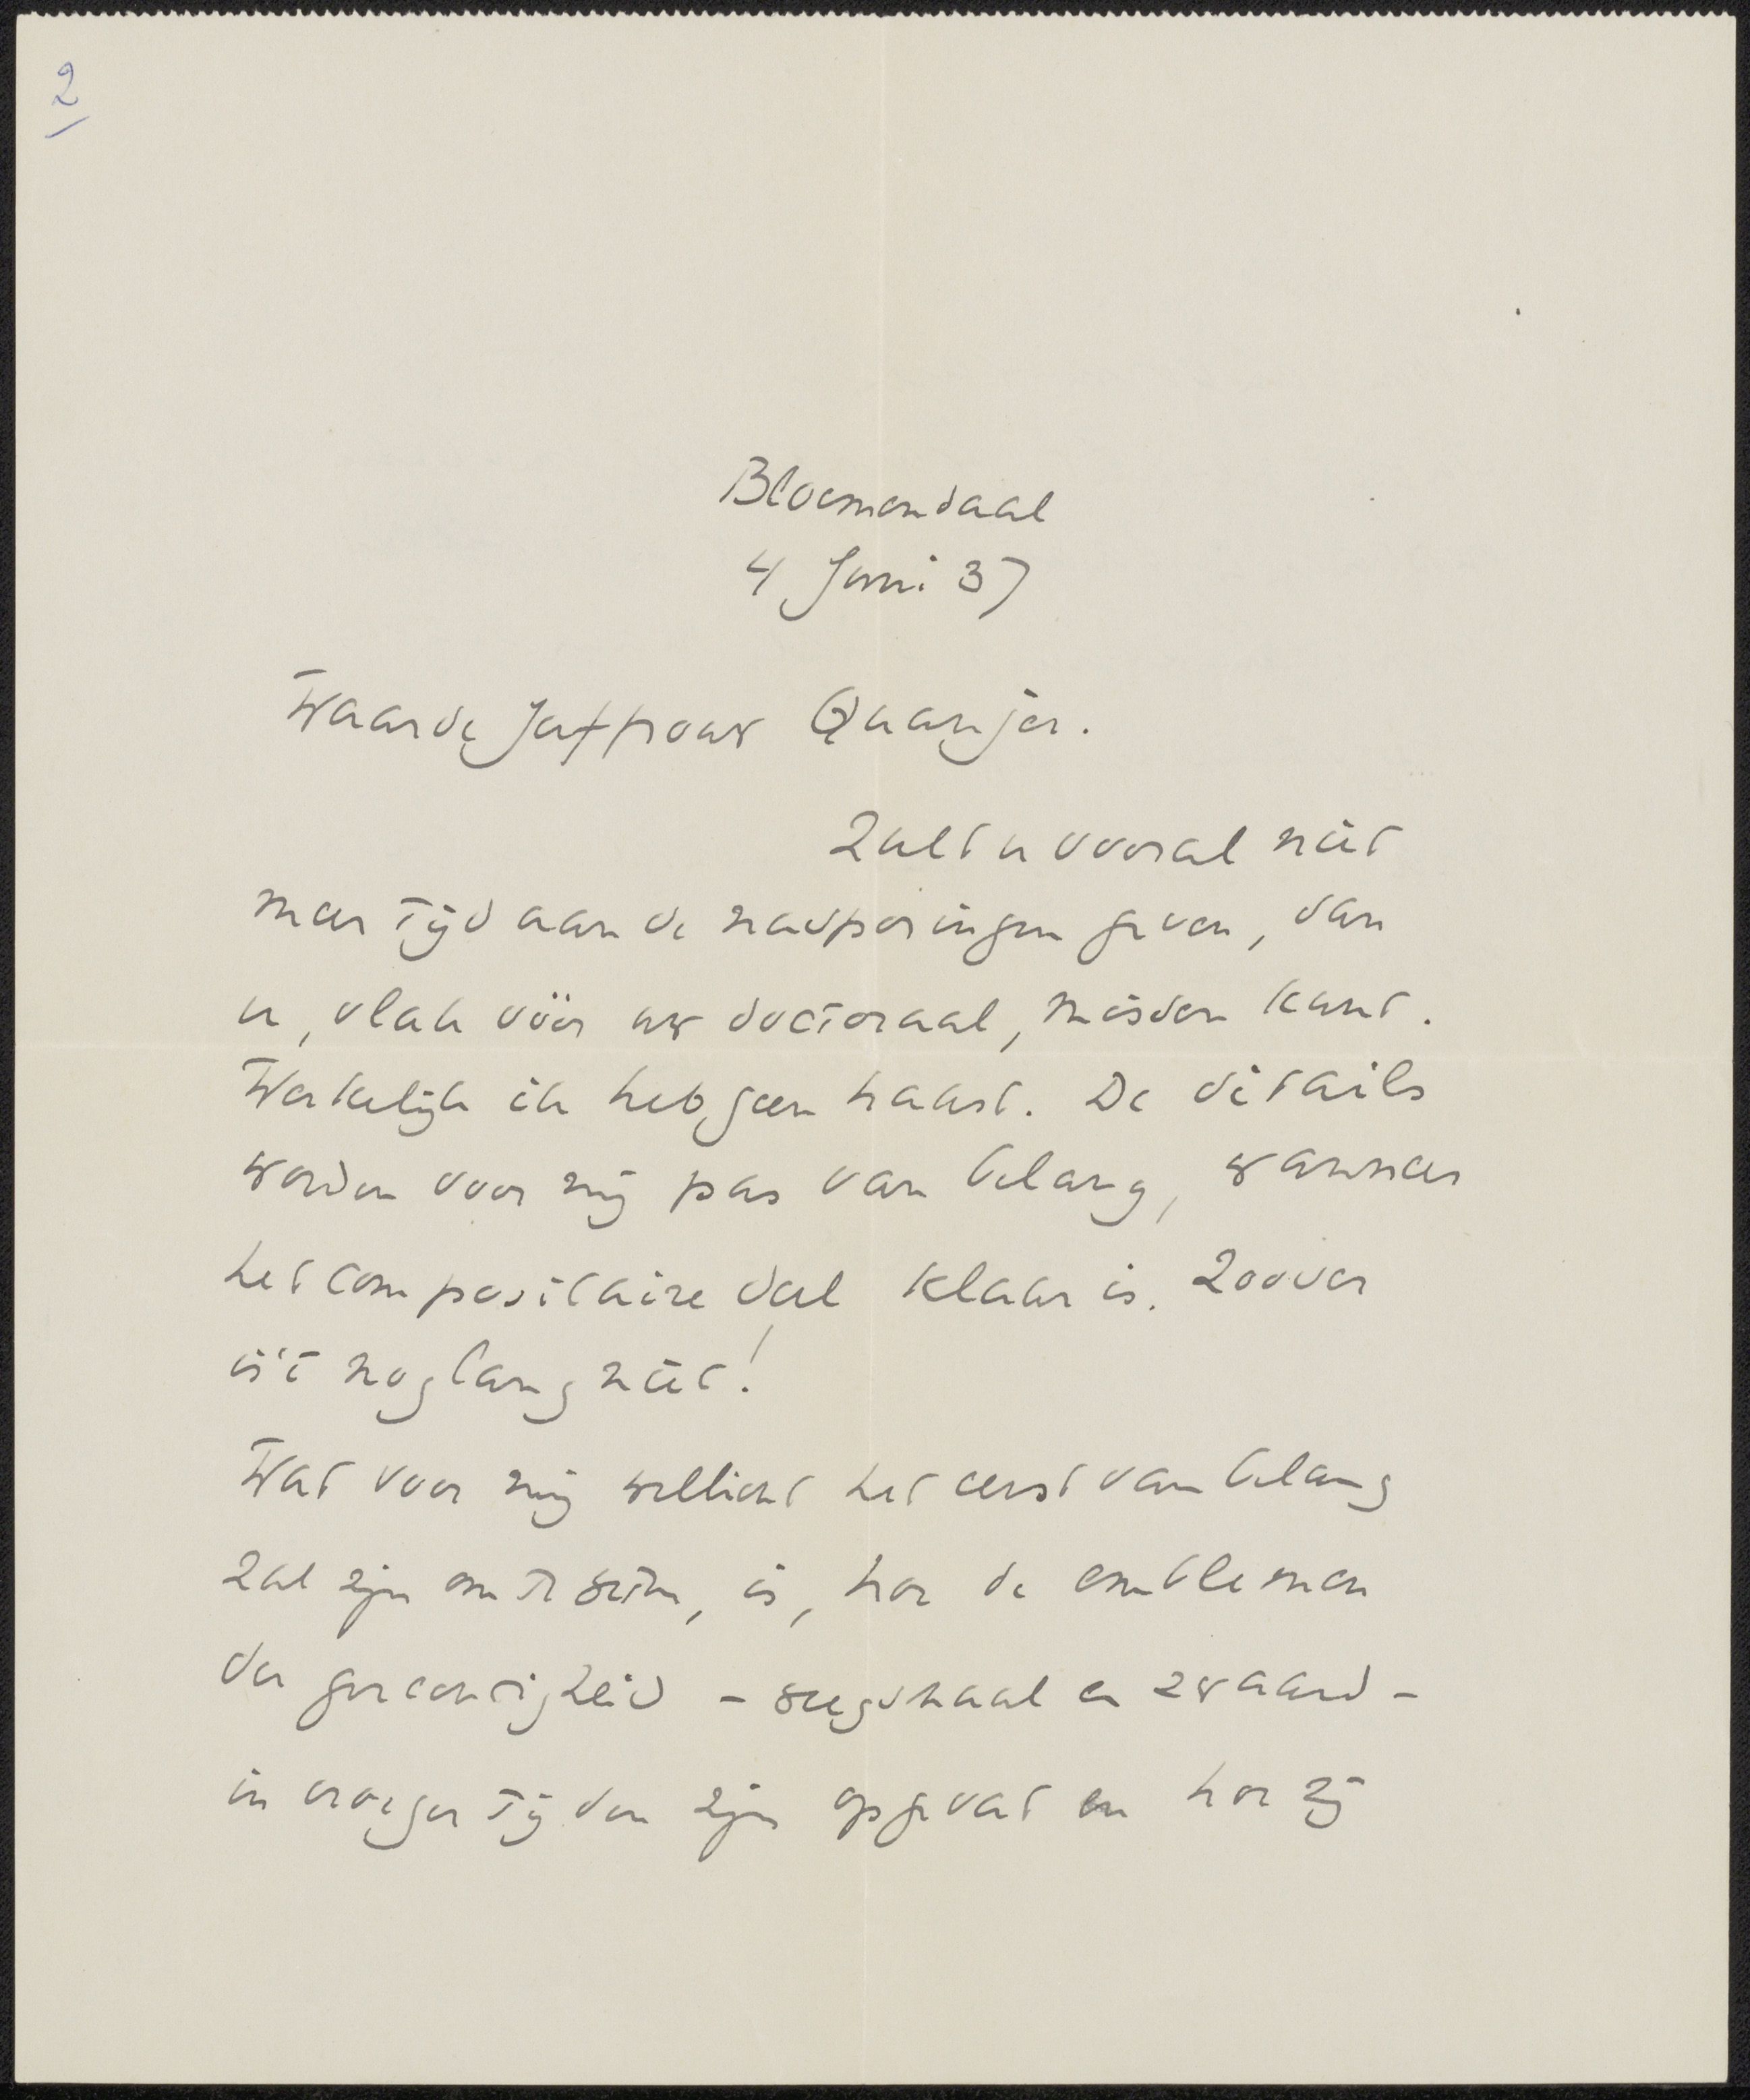 2
Bloemendaal
4 Juni 37
Waarde Juffrouw Quarjer.
Zult u vooral niet
meer tijd aan de nasporingen geven, dan
u, vlak vóór uw doctoraal, missen kunt.
Werkelijk ik heb geen haast. De details
worden voor mij pas van belang, wanneer
het compositaire deel klaar is. Zoover
is 't nog lang niet!
Wat voor mij wellicht het eerst van belang
zal zijn om te weten, is, hoe de emblemen
der gerechtigheid – weegschaal en zwaard –
in vroeger tijden zijn opgevat en hoe zij